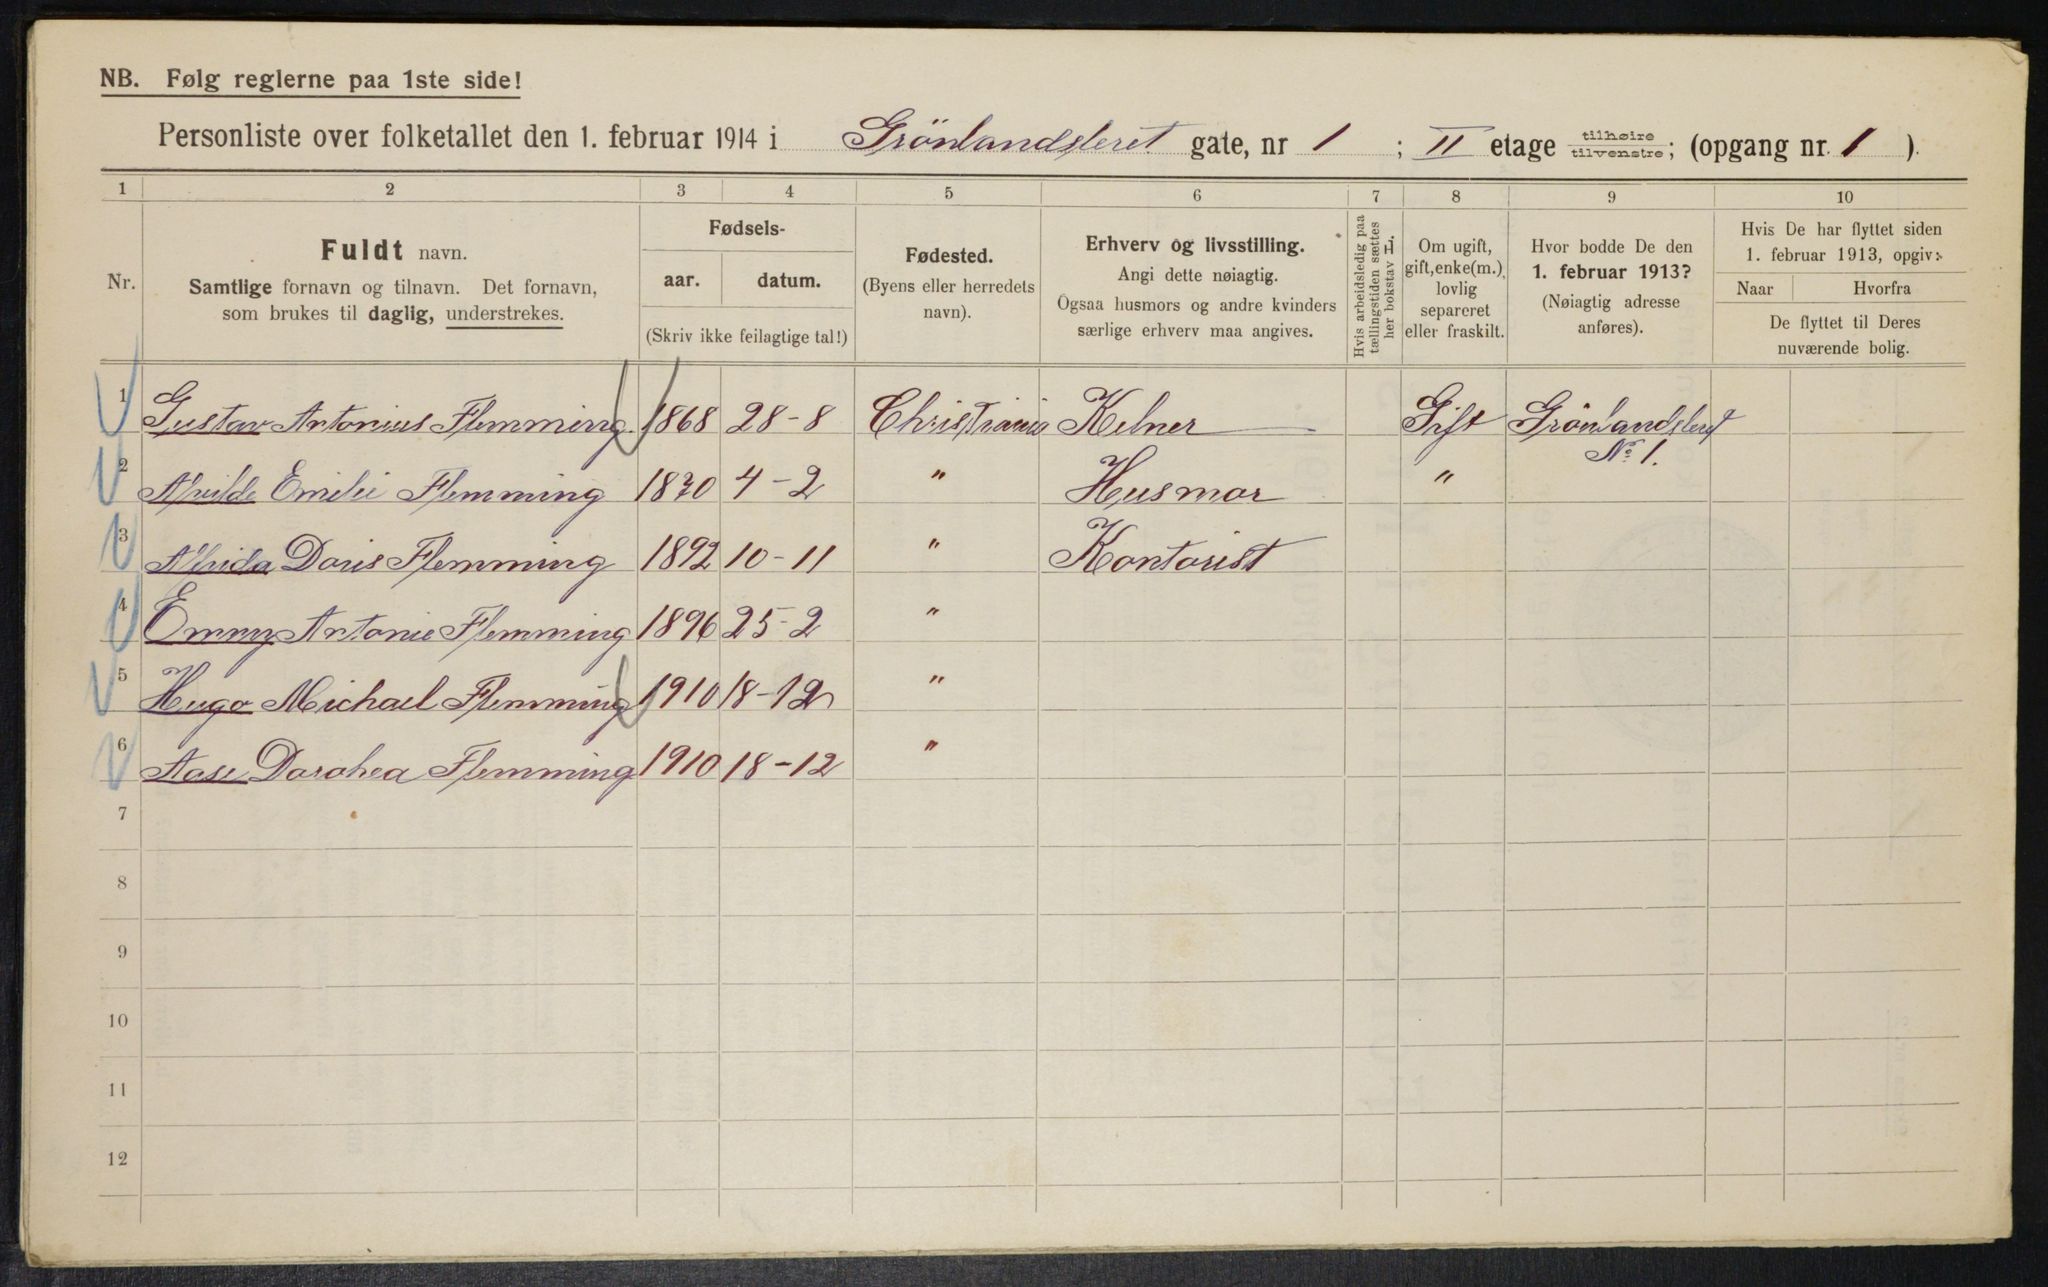 NB. Følg reglerne paa 1ste side!
Personliste over folketallet den 1. februar 1914 i Grönlandsleret gate, nr 1 ; II etage tilhøire tilvenstre; (opgang nr. 1 ).
1 2 3 4 5 6 7 8 9 10
Nr.
Fuldt navn.
Samtlige fornavn og tilnavn. Det fornavn,
som brukes til daglig, understrekes.
Fødsels-
aar. datum.
(Skriv ikke feilagtige tal!)
Fødested.
(Byens eller herredets
navn).
Erhverv og livsstilling.
Angi dette nøiagtig.
Ogsaa husmors og andre kvinders
særlige erhverv maa angives.
Hvis arbeidsledig paa
tællingstiden sættes
her bokstav L.
Om ugift,
gift, enke(m.),
lovlig
separeret
eller fraskilt.
Hvor bodde De den
1. februar 1913?
(Nøiagtig adresse
anføres).
Hvis De har flyttet siden
1. februar 1913, opgiv:
Naar Hvorfra
De flyttet til Deres
nuværende bolig.
1 Gustav Antonius Flemming 1868 28-8 Christiania Kelner Gift Grönlandsleret
No 1.
2 Alvilde Emilie Flemming 1870 4-2 " Husmor "
3 Doris Flemming 1892 10-11 " Kontorist
4 Emmy Antonie Flemming 1896 25-2 "
5 Hugo Michael Flemming 1910 18-12 "
6 Aase Dorohea Flemming 1910 18-12 "
7
8
9
10
11
12